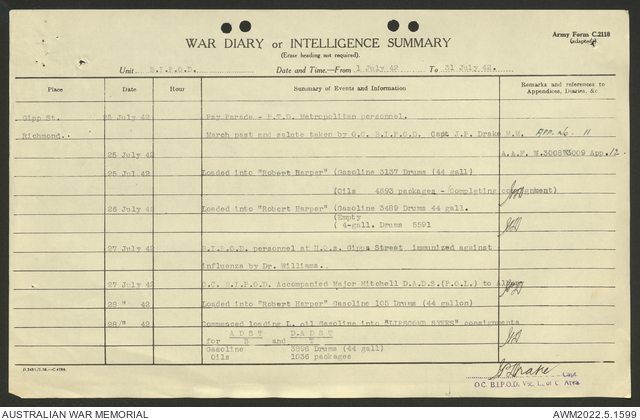 Army Form C.2118
(adapted)
WAR DIARY or INTELLIGENCE SUMMARY
(Erase heading not required).
Unit B.I.P.O.D. Date and Time—From 1 July 42 To 31 July 42.
Place Date Hour Summary of Events and Information Remarks and references to Appendices, Diaries, &c.
Gipp St. 25 July 42 Pay Parade - P.T.D. Metropolitan personnel.
Richmond. March past and salute taken by O.C. B.I.P.O.D. Capt J.P. Drake M.M. App. No. 11
25 July 42 A.A.F. W.3008 3009 App. 12.
25 Jul 42 Loaded into "Robert Harper" (Gasoline 3137 Drums (44 gall)
(Oils 4893 packages - Completing consignment)
26 July 42 Loaded into "Robert Harper" (Gasoline 3489 Drums 44 gall.
(Empty
( 4-gall. Drums 5591
27 July 42 B.I.P.O.D. personnel at H.Q.s. Gipps Street immunized against
influenza by Dr. Williams.
27 July 42 B.I.P.O.D. Accompanied Major Mitchell D.A.D.S.(P.O.L.) to
28 " 42 Loaded into "Robert Harper" Gasoline 105 Drums (44 gallon)
28/" 42 Commenced loading L. oil Gasoline into consignments
for A D S T and D.A D S T
Gasoline 3896 Drums (44 gall)
Oils 1036 packages
JPDrake Capt.
O.C. B.I.P.O.D. Vic. L. of C. Area
AUSTRALIAN WAR MEMORIAL
AWM2022.5.1599